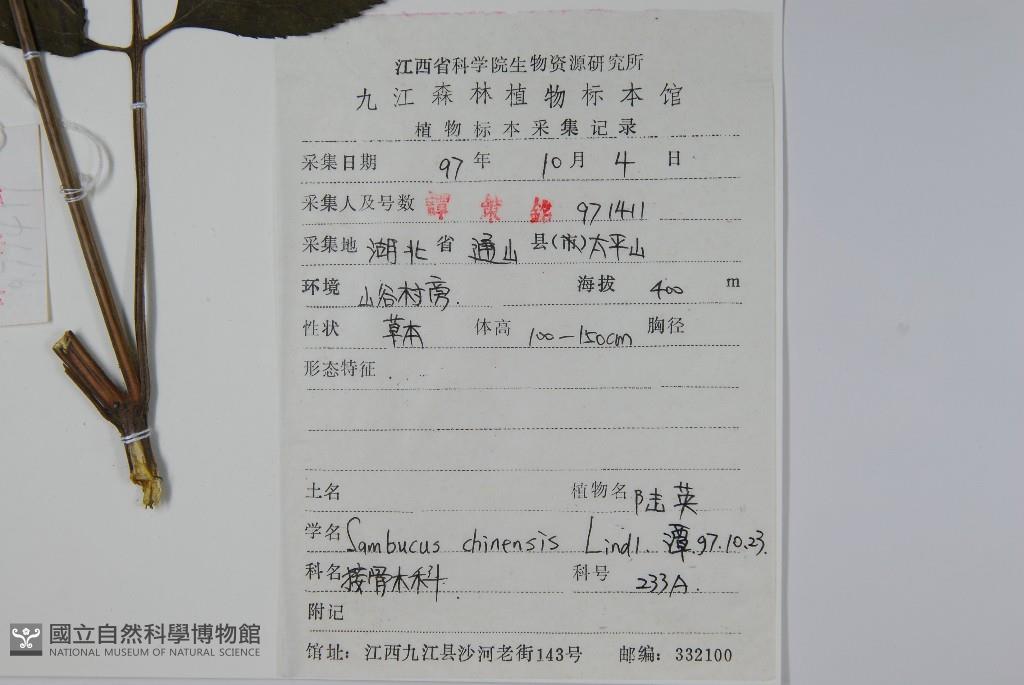 江西省科学院生物资源研究所
九江森林植物标本馆
植物标本采集记录
采集日期 97 年 10 月 4 日
采集人及号数 譚策銘 971411
采集地 湖北 省 通山 县(市) 太平山
环境 山谷村旁. 海拔 400 m
性状 草本 体高 100-150cm 胸径
形态特征
土名 植物名 陆英
学名 Sambucus chinensis Lindl. 潭.97.10.23.
科名 接骨木科. 科号 233A.
附记
馆址: 江西九江县沙河老街143号 邮编: 332100
國立自然科學博物館
NATIONAL MUSEUM OF NATURAL SCIENCE